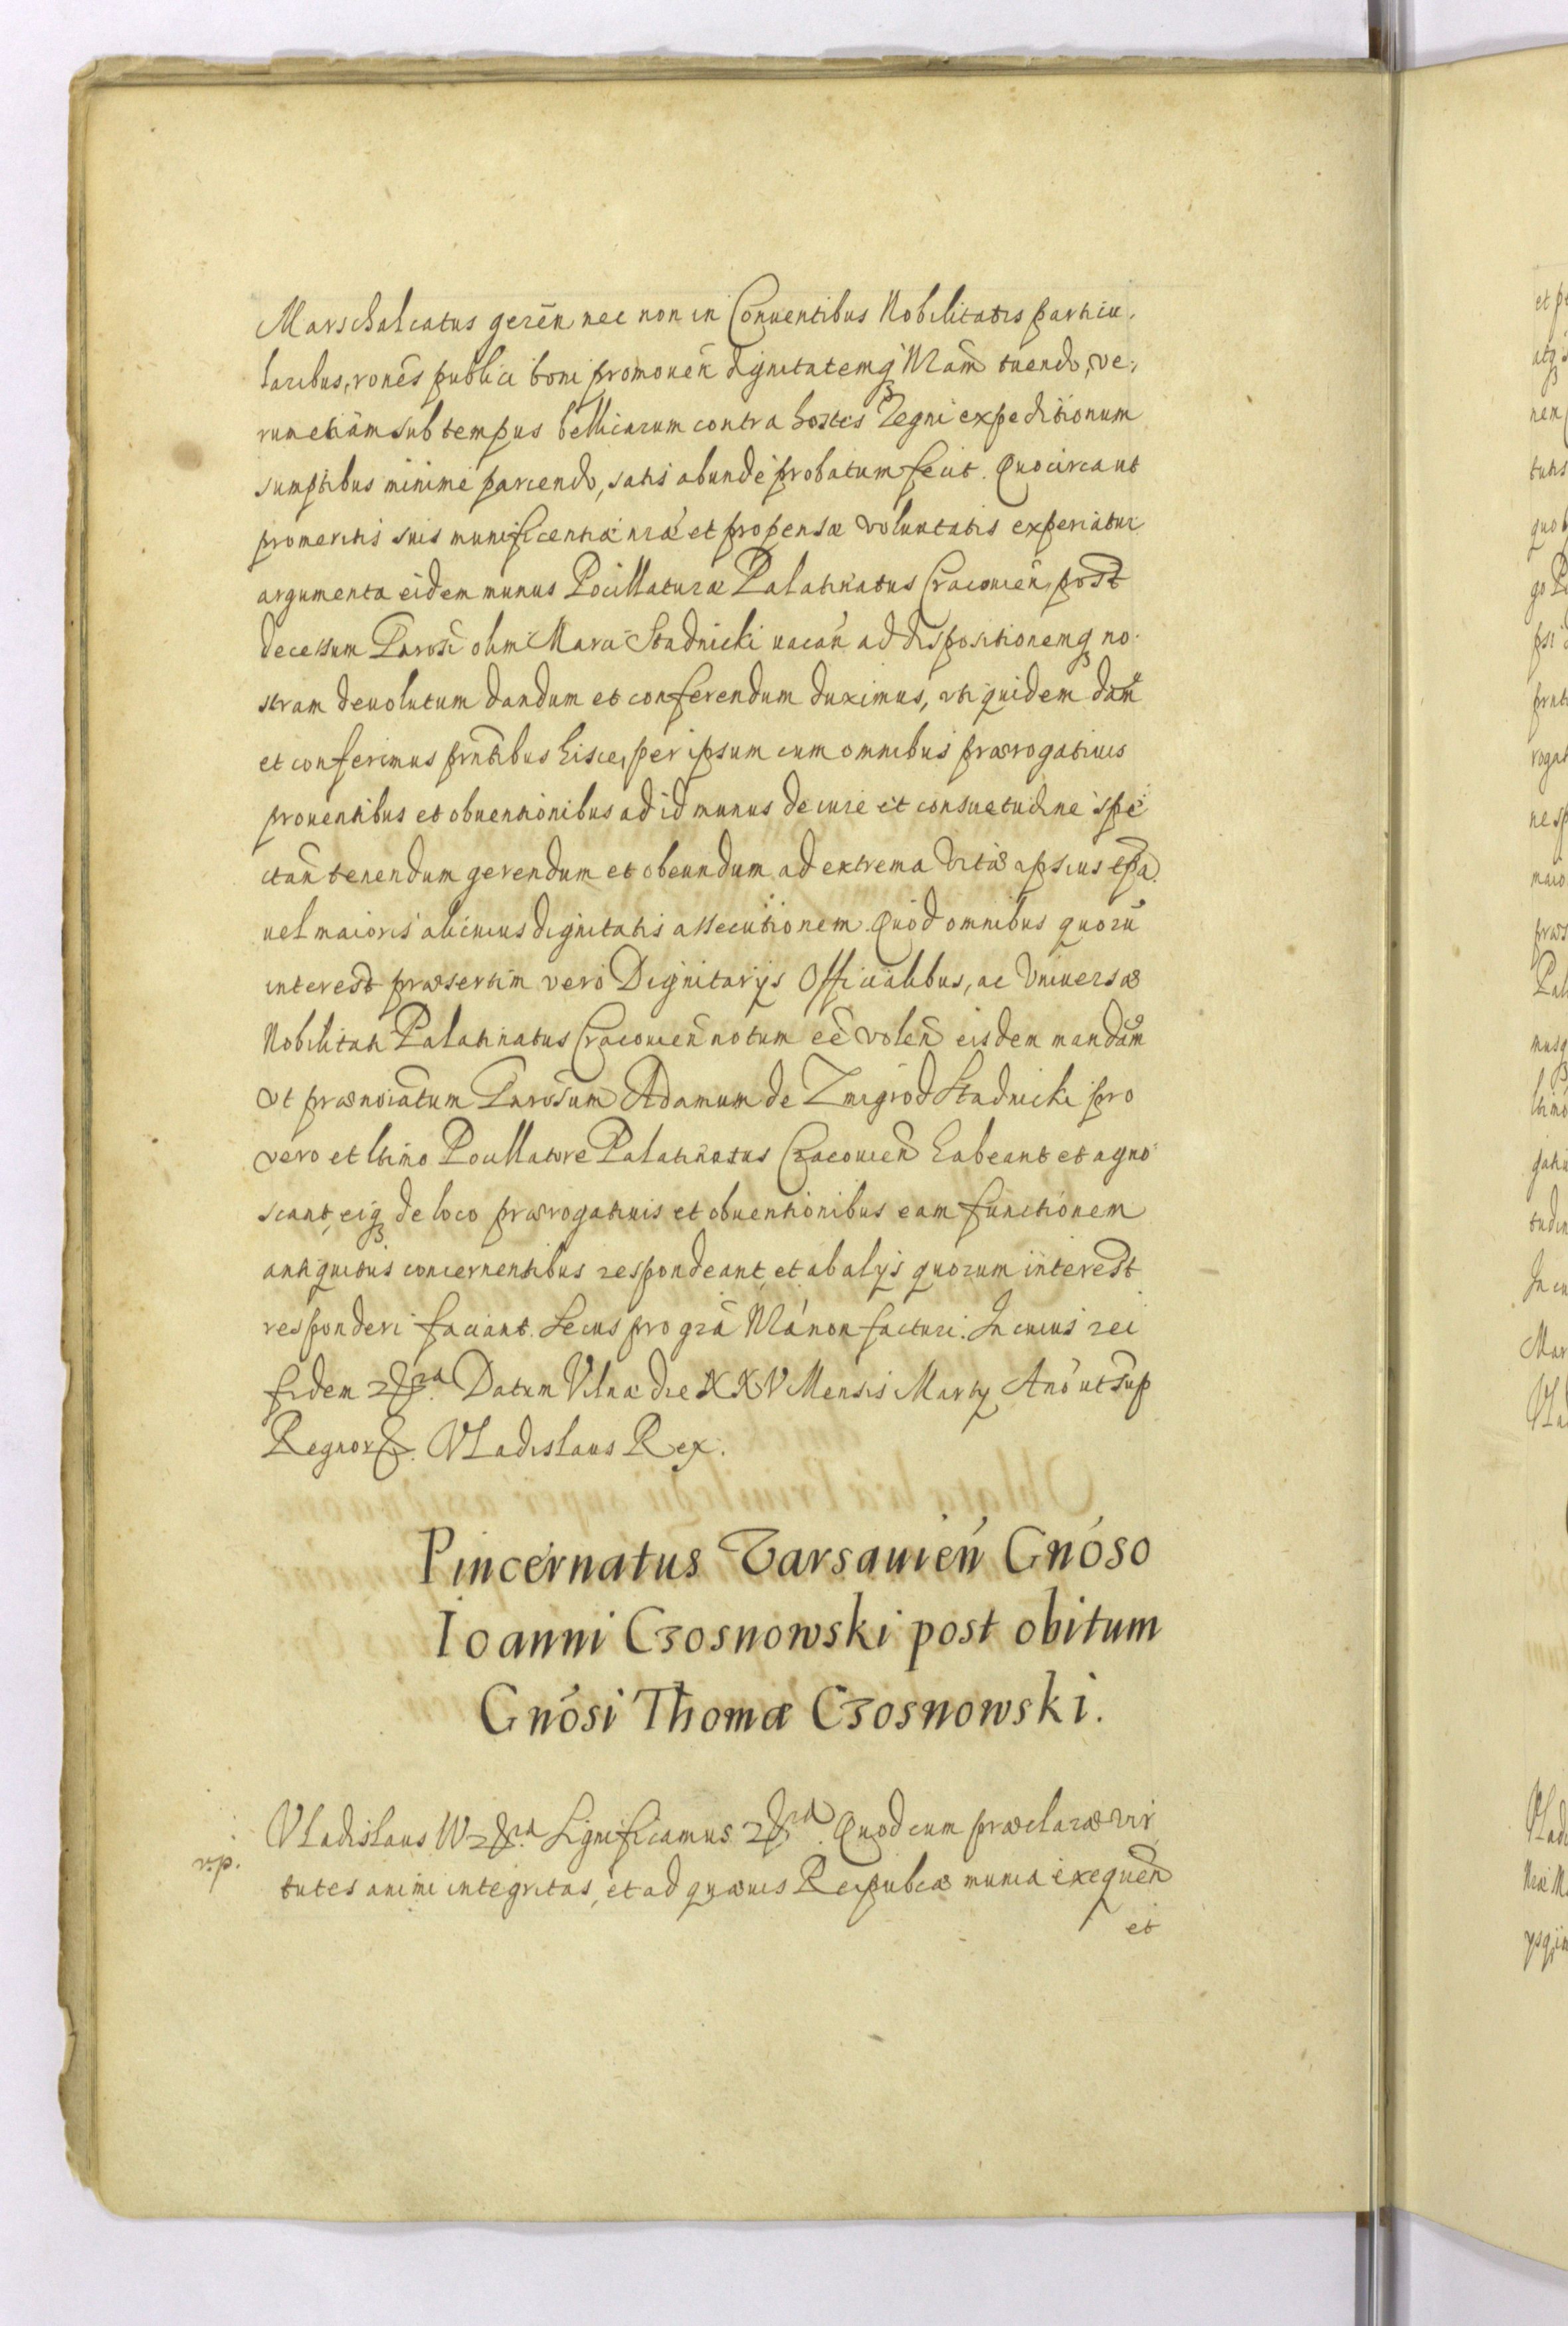 Marschalcatus gerēn nec non in Conuentibus Nobilitatis particu,
laribus, ronēs publici boni promouēn dignitatemq̃ Nrām tuendo, ve,
rum etiam sub tempus bellicarum contra hostes Regni expeditionum
sumptibus minime parcendo, satis abundè probatum fecit. Quocirca ut
promeritis suis munificentiæ nræ et propensæ voluntatis experiatur
argumenta eidem munus Pocillaturæ Palatinatus Cracouień post
decessum Gnrosi olim Marci Stadnicki vacań ad dispositionemq̃ no,
stram deuolutum dandum et conferendum duximus, uti quidem dam̃
et conferimus prntibus hisce, per ipsum cum omnibus prærogatiuis
prouentibus et obuentionibus ad id munus de iure et consuetudine spe
ctań tenendum gerendum et obeundum ad extrema vitæ ipsius tpa.
uel maioris alicuius dignitatis assecutionem. Quod omnibus quorū
interest præsertim verò Dignitarijs Officialibus, ac Vniuersæ
Nobilitati Palatinatus Cracouień notum eē volēn eisdem mandam̃
vt prænoiatum Gnrosum Adamum de Zmigrod Stadnicki pro
vero et ltimo Pocillatore Palatinatus Cracouień habeant et agno
scant, eiq̃ de loco prærogatiuis et obuentionibus eam functionem
antiquitus concernentibus respondeant, et ab alijs quorum interest
responderi faciant. Secus pro grā Nrā non facturi. In cuius rei
fidem &ra. Datum Vilnæ die XXV Mensis Martij Anō ut sup
Regnor &. Vladislaus Rex.
Pincernatus Varsauień Gnóso
Ioanni Czosnowski post obitum
Gnósi Thomæ Czosnowski.
Vladislaus IV &ra. Significamus &ra. Quod cum præclaræ vir
tutes animi integritas, et ad quæuis Reipublcæ munia exequēn
et